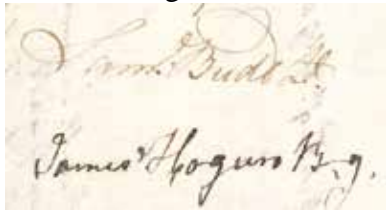 Sam.l Budd Lt.
James Hogun B. g.